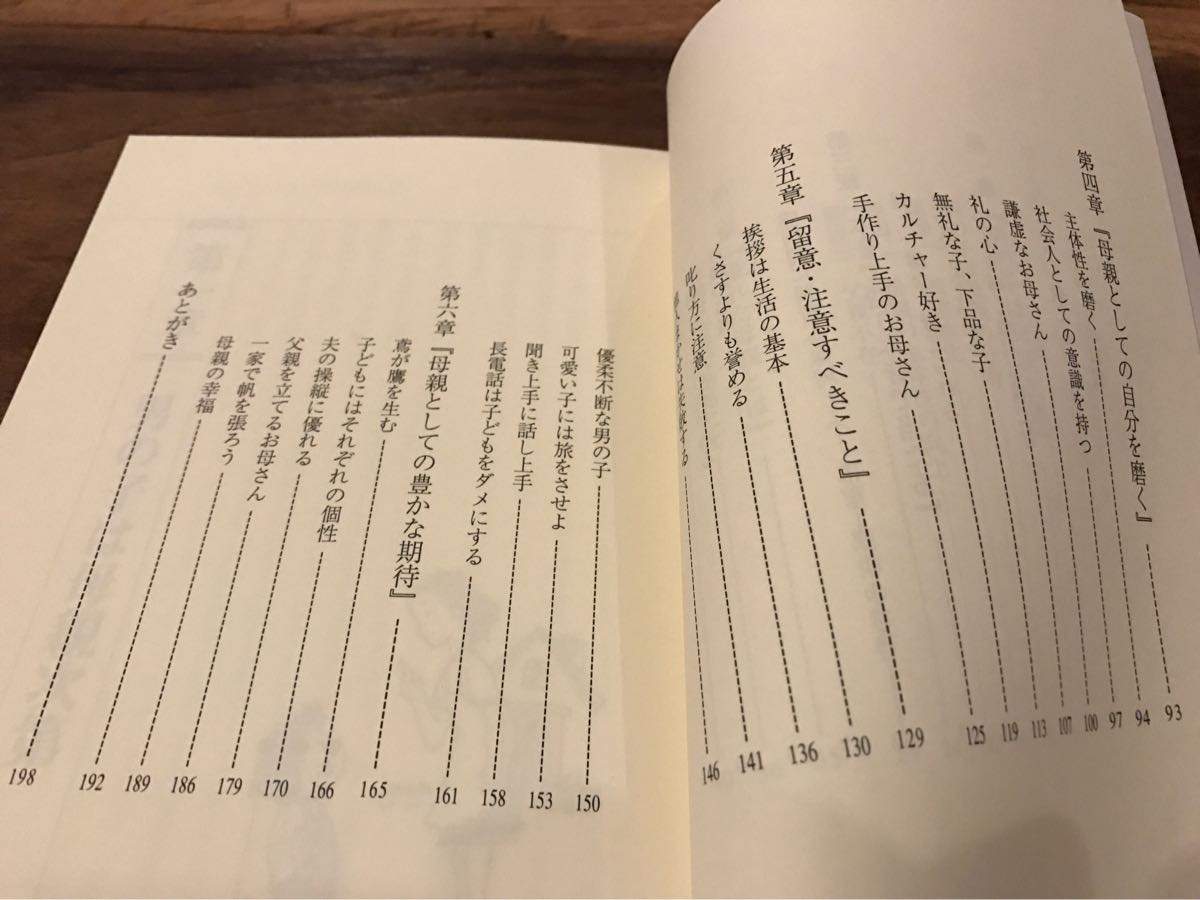 第四章『母親としての自分を磨く』 93
主体性を磨く 94
社会人としての意識を持つ 97
謙虚なお母さん 100
礼の心 107
無礼な子、下品な子 113
カルチャー好き 119
手作り上手のお母さん 125
第五章『留意・注意すべきこと』 129
挨拶は生活の基本 130
くさすよりも誉める 136
叱り方に注意 141
する 146
優柔不断な男の子 150
可愛い子には旅をさせよ 153
聞き上手に話し上手 158
長電話は子どもをダメにする 161
第六章『母親としての豊かな期待』 165
鳶が鷹を生む 166
子どもにはそれぞれの個性 170
夫の操縦に優れる 179
父親を立てるお母さん 186
一家で帆を張ろう 189
母親の幸福 192
あとがき 198